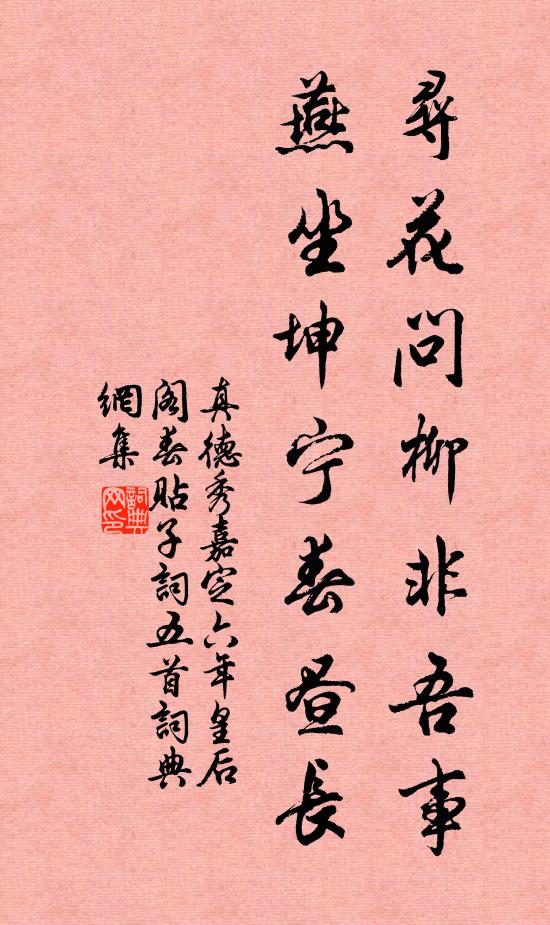 尋花問柳非吾事
燕坐坤宁春昼長
真德秀嘉定六年皇后
阁春貼子詞五首詞典
網集
詞典
网印